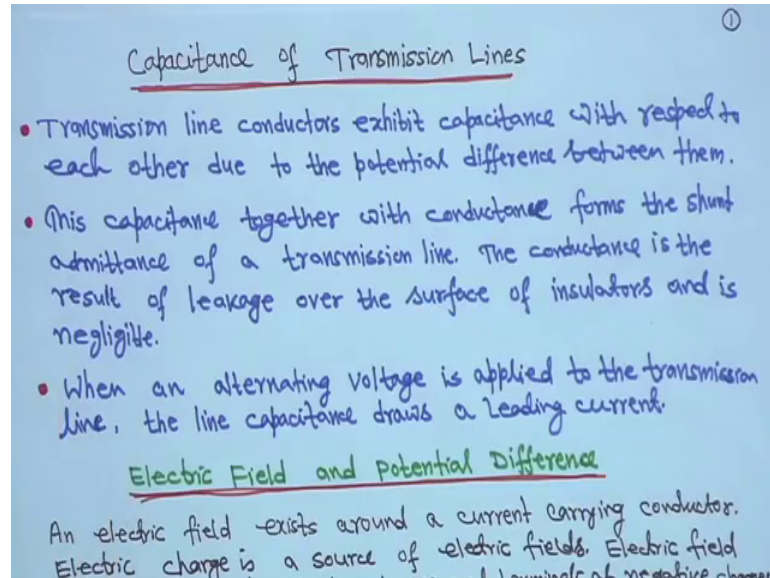 ①
Capacitance of Transmission Lines
• Transmission line conductors exhibit capacitance with respect to
each other due to the potential difference between them.
• This capacitance together with conductance forms the shunt
admittance of a transmission line. The conductance is the
result of leakage over the surface of insulators and is
negligible.
• When an alternating voltage is applied to the transmission
line, the line capacitance draws a leading current.
Electric Field and Potential Difference
An electric field exists around a current carrying conductor.
Electric charge is a source of electric fields. Electric field
terminals at negative charges